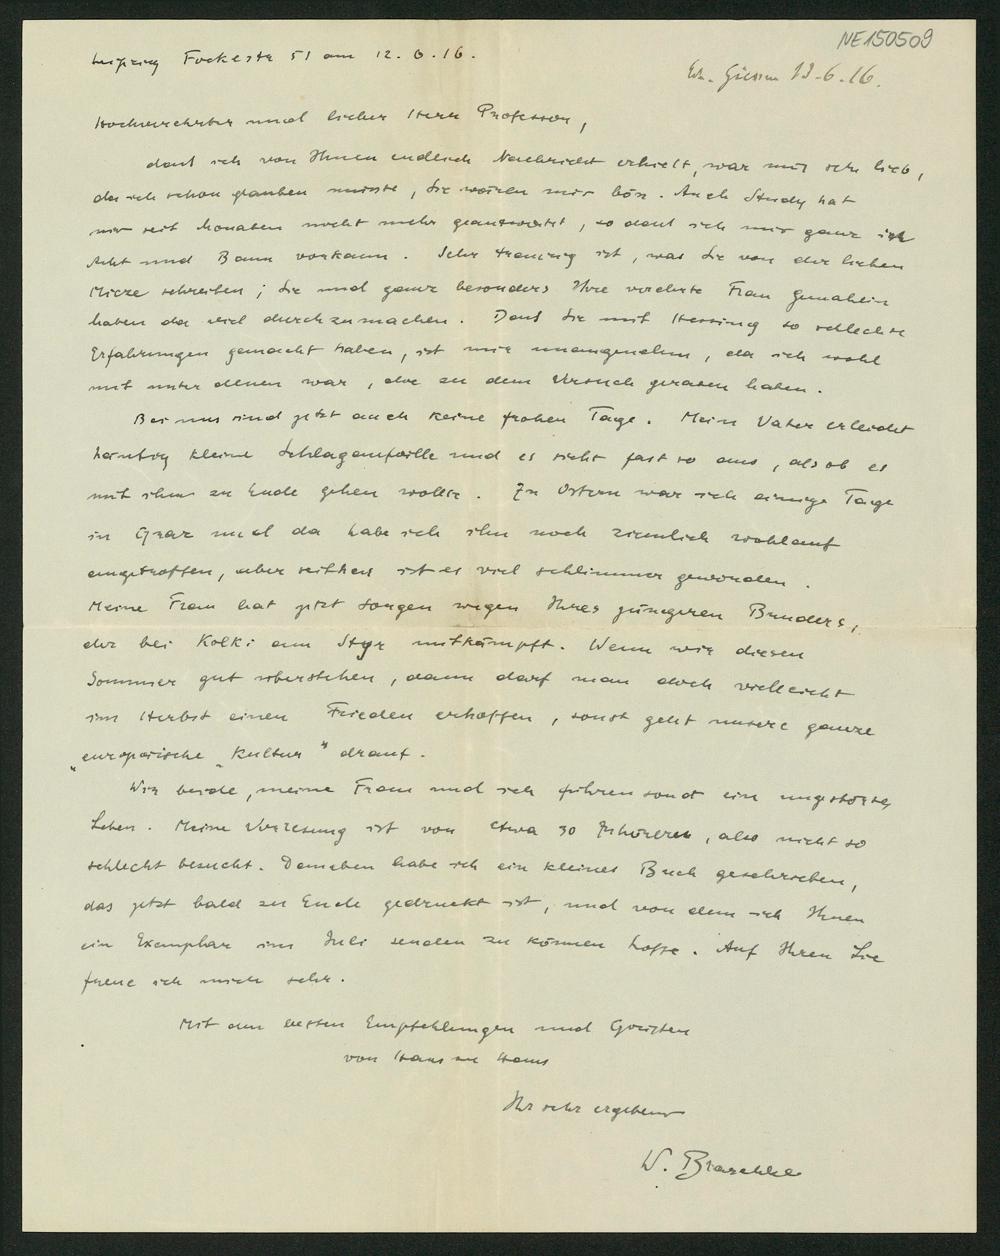 NE150509
Leipzig Fockestr 51 am 12.6.16.
Gießen 13.6.16.
Hochverehrter und lieber Herr Professor,
dass ich von Ihnen endlich Nachricht erhielt, war mir sehr lieb,
da ich schon glauben musste, Sie wären mir bös. Auch Study hat
mir seit Monaten nicht mehr geantwortet, so dass ich mir ganz in
Acht und Bann vorkam. Sehr traurig ist, was Sie von der lieben
Mieze schreiben; Sie und ganz besonders Ihre verehrte Frau Gemahlin
haben da viel durchzumachen. Dass Sie mit Hessing so schlechte
Erfahrungen gemacht haben, ist mir unangenehm, da ich wohl
mit unter denen war, die zu dem Versuch geraten haben.
Bei uns sind jetzt auch keine frohen Tage. Mein Vater erleidet
häufig kleine Schlaganfälle und es sieht fast so aus, als ob es
mit ihm zu Ende gehen wollte. Zu Ostern war ich einige Tage
in Graz und da habe ich ihn noch ziemlich wohlauf
angetroffen, aber seither ist es viel schlimmer geworden.
Meine Frau hat jetzt Sorgen wegen Ihres jüngeren Bruders,
der bei Kolki am Styr mitkämpft. Wenn wir diesen
Sommer gut überstehen, dann darf man doch vielleicht
im Herbst einen Frieden erhoffen, sonst geht unsere ganze
„europäische „Kultur" drauf.
Wir beide, meine Frau und ich führen sonst ein ungestörtes
Leben. Meine Vorlesung ist von etwa 30 Zuhörern, also nicht so
schlecht besucht. Daneben habe ich ein kleines Buch geschrieben,
das jetzt bald zu Ende gedruckt ist, und von dem ich Ihnen
ein Exemplar im Juli senden zu können hoffe. Auf Ihren Lie
freue ich mich sehr.
Mit den besten Empfehlungen und Grüssen
von Haus zu Haus
Ihr sehr ergebener
W. Blaschke